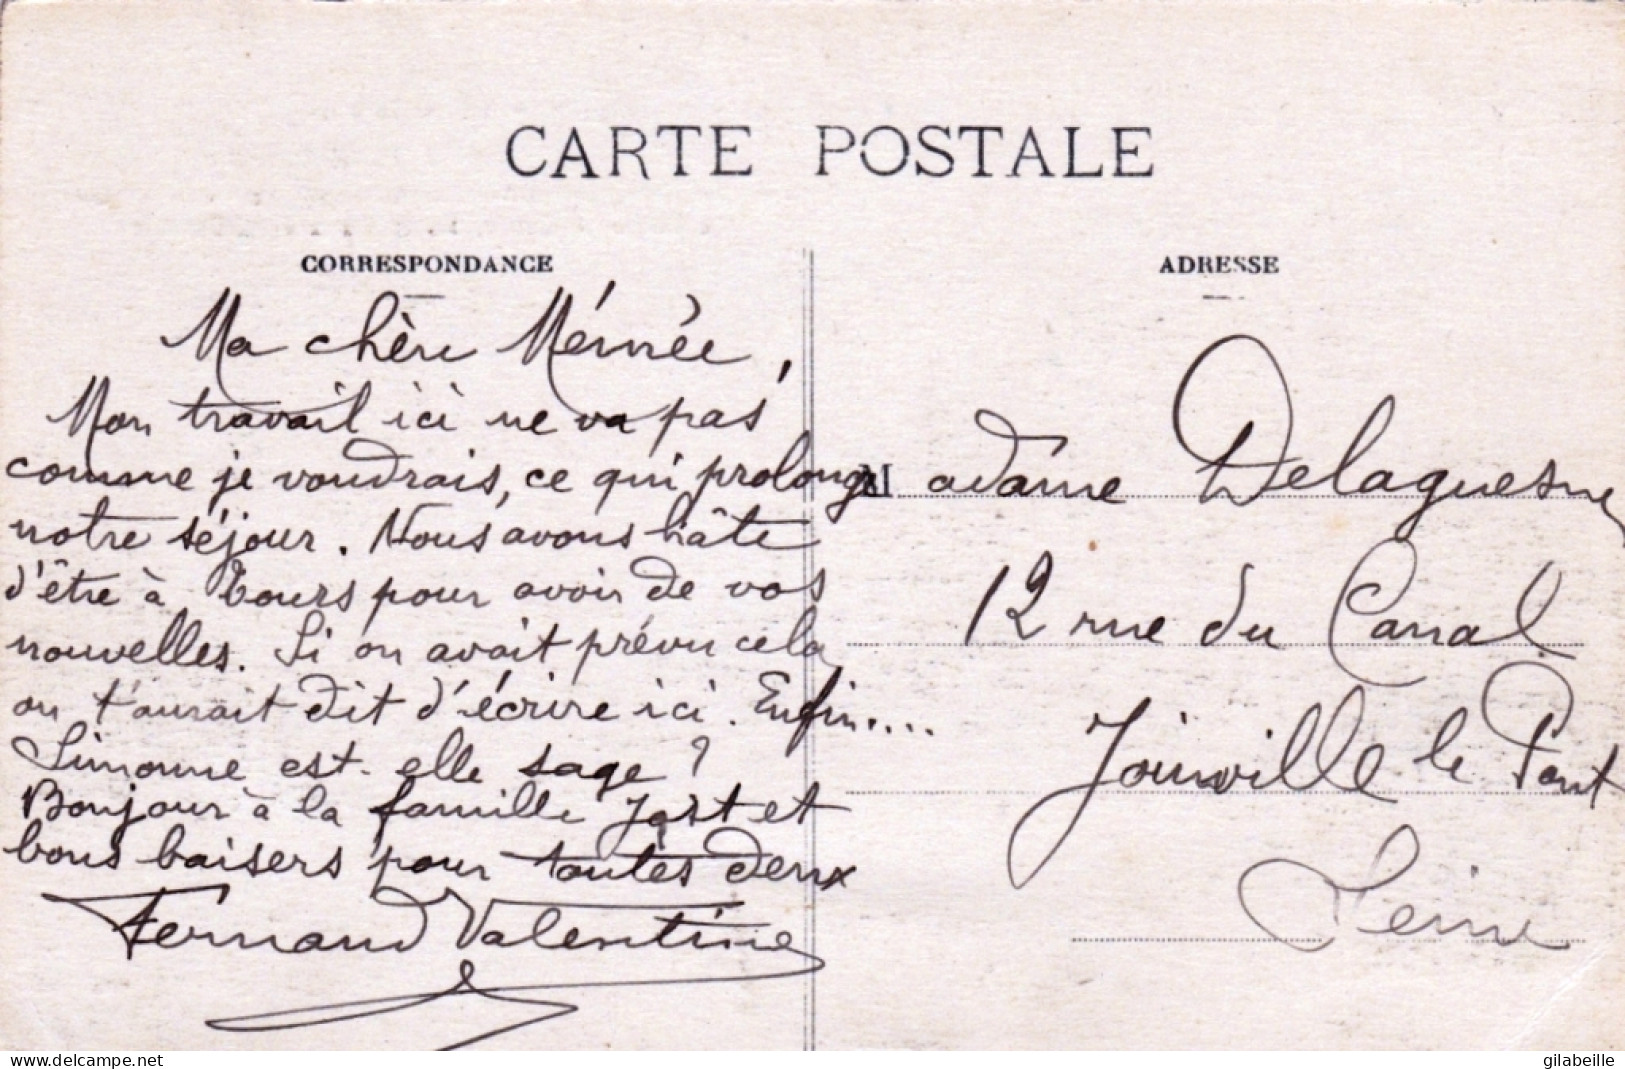 CARTE POSTALE
CORRESPONDANCE
Ma chère Mémée,
Mon travail ici ne va pas
comme je voudrais, ce qui prolonge
notre séjour. Nous avons hâte
d'être à Tours pour avoir de vos
nouvelles. Si on avait prévu cela
on t'aurait dit d'écrire ici. Enfin....
Simonne est-elle sage ?
Bonjour à la famille Jost et
bons baisers pour toutes deux
Fernand Valentine
ADRESSE
Madame Delaguesne
12 rue du Canal
Joinville le Pont
Seine
www.delcampe.net
gilabeille